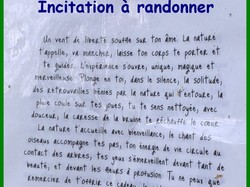 Incitation à randonner
Un vent de liberté souffle sur ton âme. La nature
t'appelle, va marcher, laisse ton corps te porter et
te guider. L'expérience s'ouvre, unique, magique et
merveilleuse. Plonge en toi, dans le silence, la solitude,
des retrouvailles bénies par la nature qui t'entoure, la
pluie coule sur tes joues, tu te sens nettoyée, avec
douceur, la caresse de la bruine te réchauffe le coeur.
La nature t'accueille avec bienveillance, le chant des
oiseaux accompagne tes pas, ton énergie de vie circule au
contact des arbres, tes yeux s'émerveillent devant tant de
beauté, et devant les fleurs à profusion. Tu ne peux que
remercier de t'offrir ce cadeau